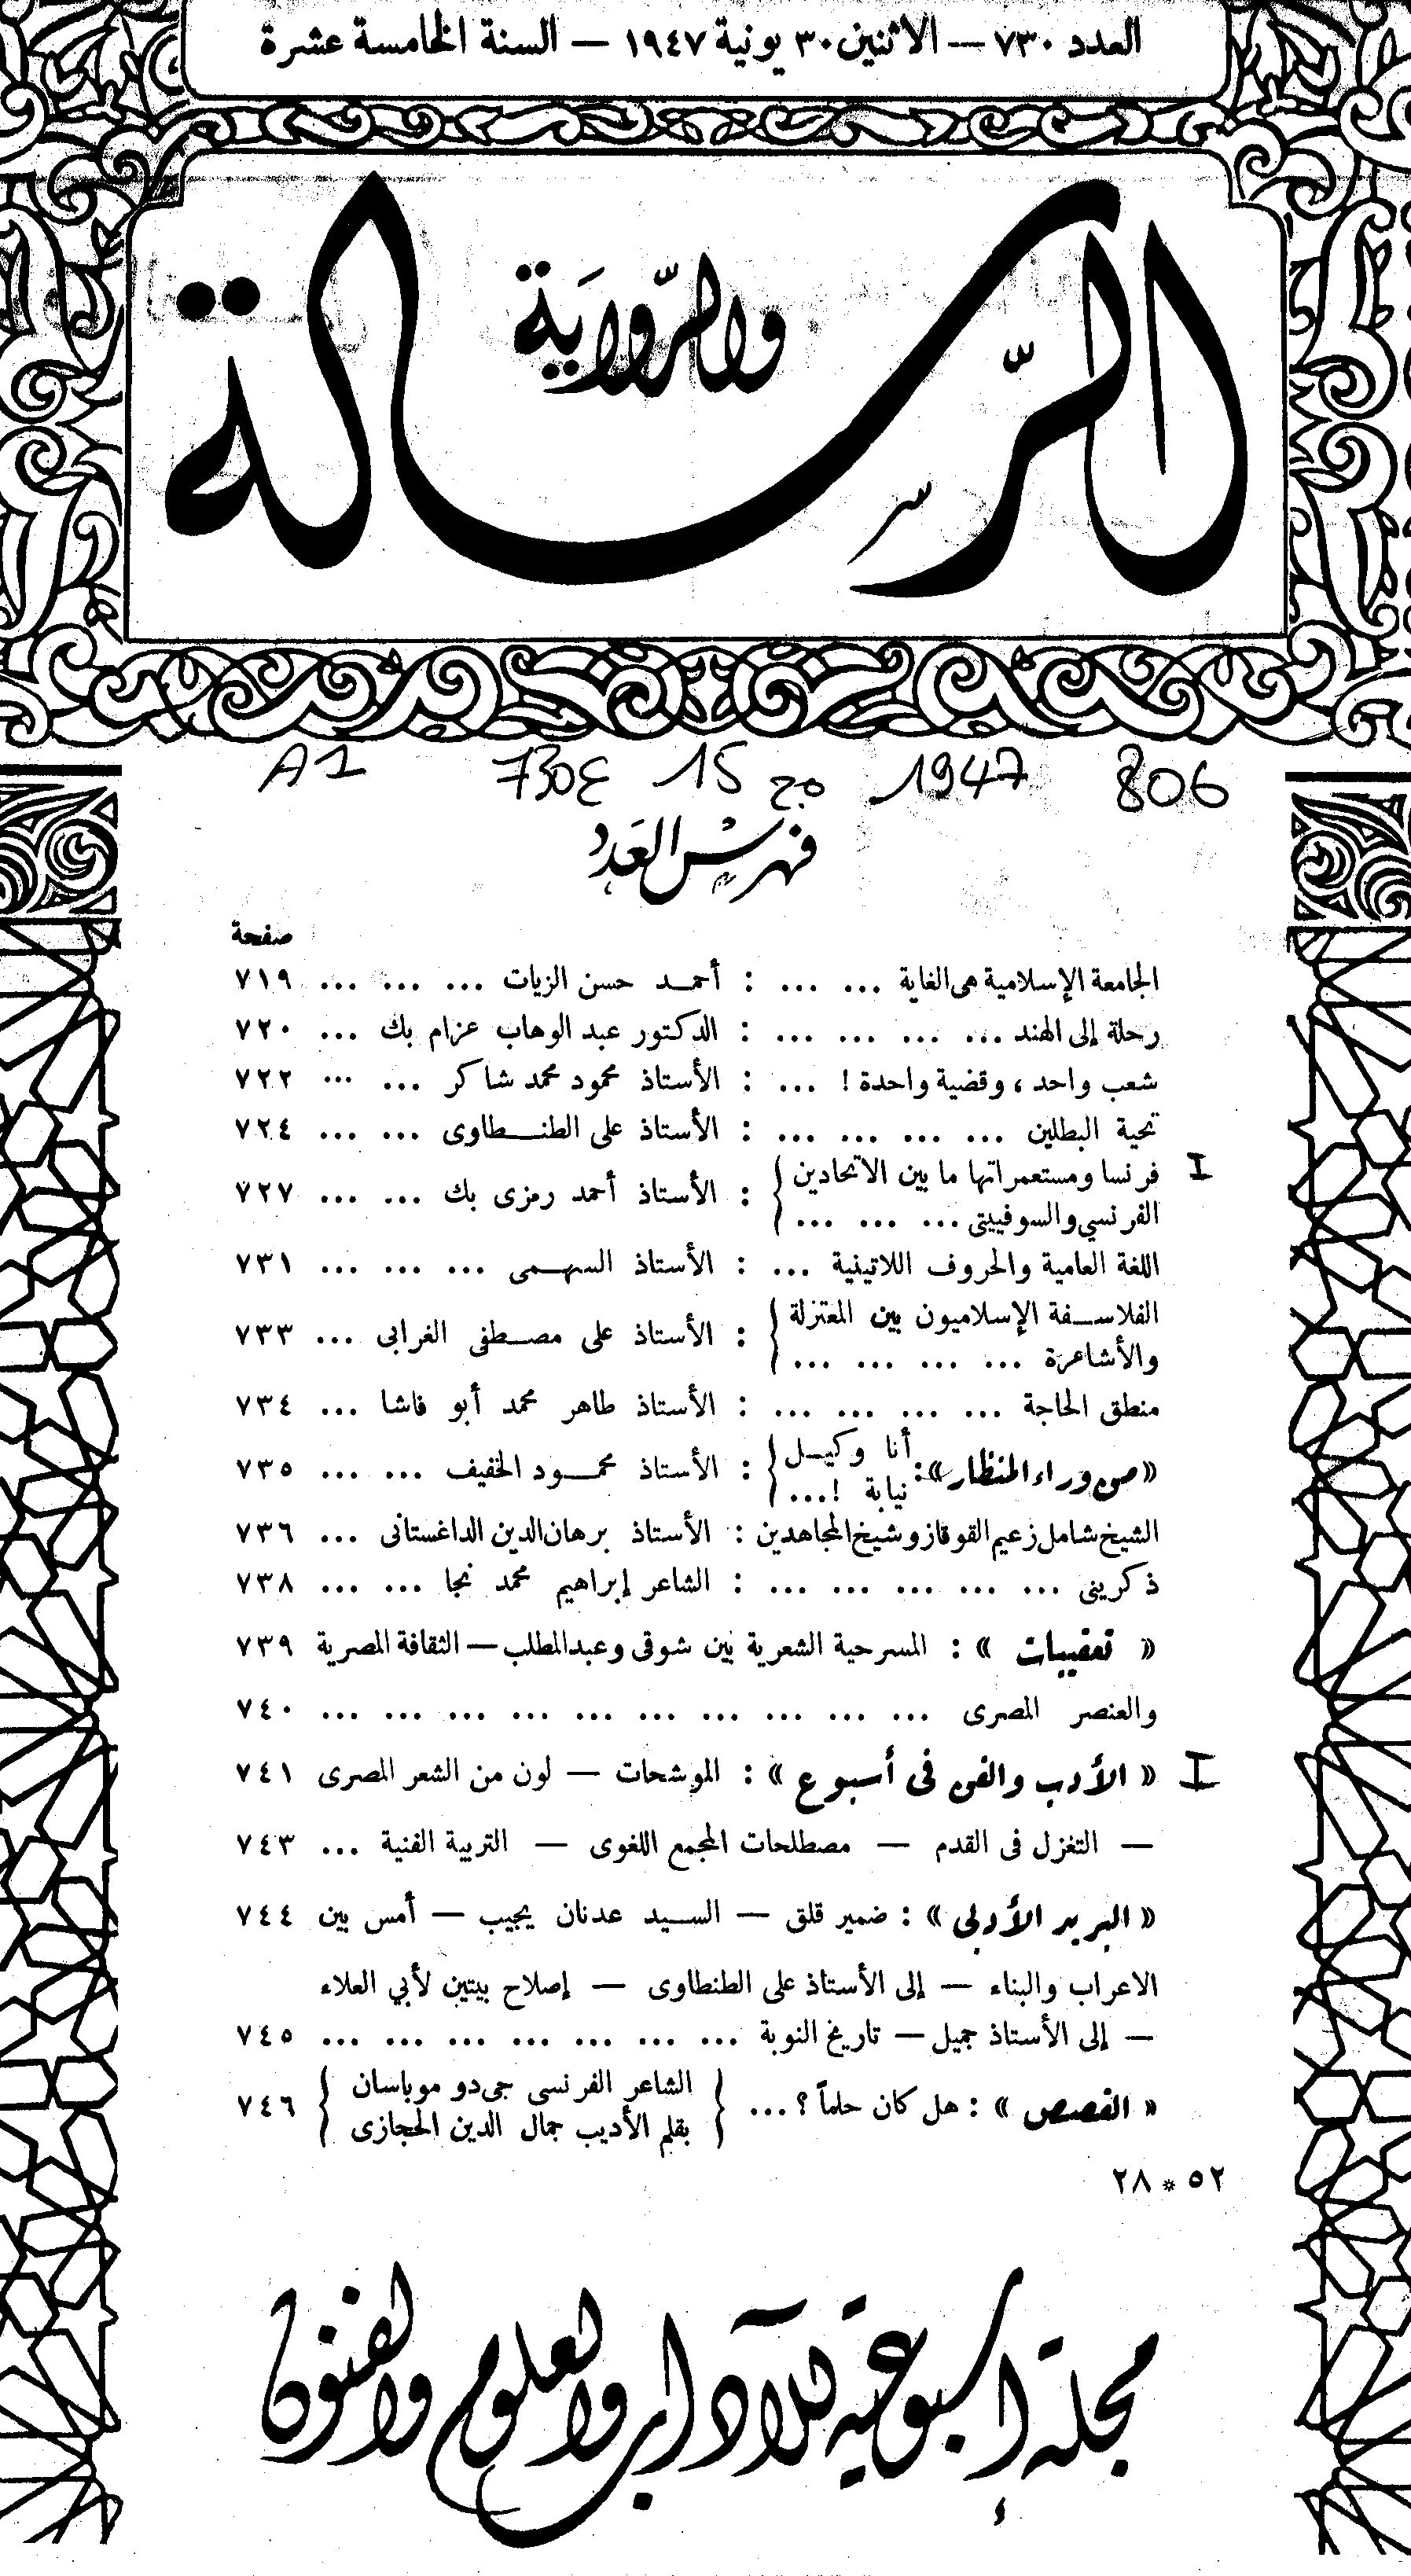 العدد ٧٣٠ — الاثنين ٣٠ يونية ١٩٤٧ — السنة الخامسة عشرة
الرسالة
والرواية
A1 730ع 15 مج 1947 806
فهرس العدد
صفحة
الجامعة الإسلامية هى الغاية ... ... : أحمـد حسن الزيات ... ... ... ٧١٩
رحلة إلى الهند ... ... ... ... : الدكتور عبد الوهاب عزام بك ... ٧٢٠
شعب واحد ، وقضية واحدة ! ... : الأستاذ محمود محمد شاكر ... ... ٧٢٢
تحية البطلين ... ... ... ... : الأستاذ على الطنـطاوى ... ... ٧٢٤
I فرنسا ومستعمراتها ما بين الاتحادين
الفرنسي والسوفييتى ... ... ... } : الأستاذ أحمد رمزى بك ... ... ٧٢٧
اللغة العامية والحروف اللاتينية ... : الأستاذ السهـمى ... ... ... ٧٣١
الفلاسـفة الإسلاميون بين المعتزلة
والأشاعرة ... ... ... ... } : الأستاذ على مصـطفى الغرابى ... ٧٣٣
منطق الحاجة ... ... ... ... : الأستاذ طاهر محمد أبو فاشا ... ٧٣٤
«من وراء المنظار»: أنا وكيـل
نيابة !... } : الأستاذ محمـود الخفيف ... ... ٧٣٥
الشيخ شامل زعيم القوقاز وشيخ المجاهدين : الأستاذ برهان الدين الداغستانى ... ٧٣٦
ذكرينى ... ... ... ... ... : الشاعر إبراهيم محمد نجا ... ... ٧٣٨
« تعقيبات » : المسرحية الشعرية بين شوقى وعبدالمطلب — الثقافة المصرية ٧٣٩
والعنصر المصرى ... ... ... ... ... ... ... ... ... ... ٧٤٠
I « الأدب والفن فى أسبوع » : الموشحات — لون من الشعر المصرى ٧٤١
— التغزل فى القدم — مصطلحات المجمع اللغوى — التربية الفنية ... ٧٤٣
« البريد الأدبى » : ضمير قلق — السـيد عدنان يجيب — أمس بين ٧٤٤
الاعراب والبناء — إلى الأستاذ على الطنطاوى — إصلاح بيتين لأبي العلاء
— إلى الأستاذ جميل — تاريخ النوبة ... ... ... ... ... ... ... ٧٤٥
« القصص » : هل كان حلماً ؟ ... { الشاعر الفرنسى جى دو موباسان
بقلم الأديب جمال الدين الحجازى } ٧٤٦
٥٢ * ٢٨
مجلة أسبوعية للآداب والعلوم والفنون